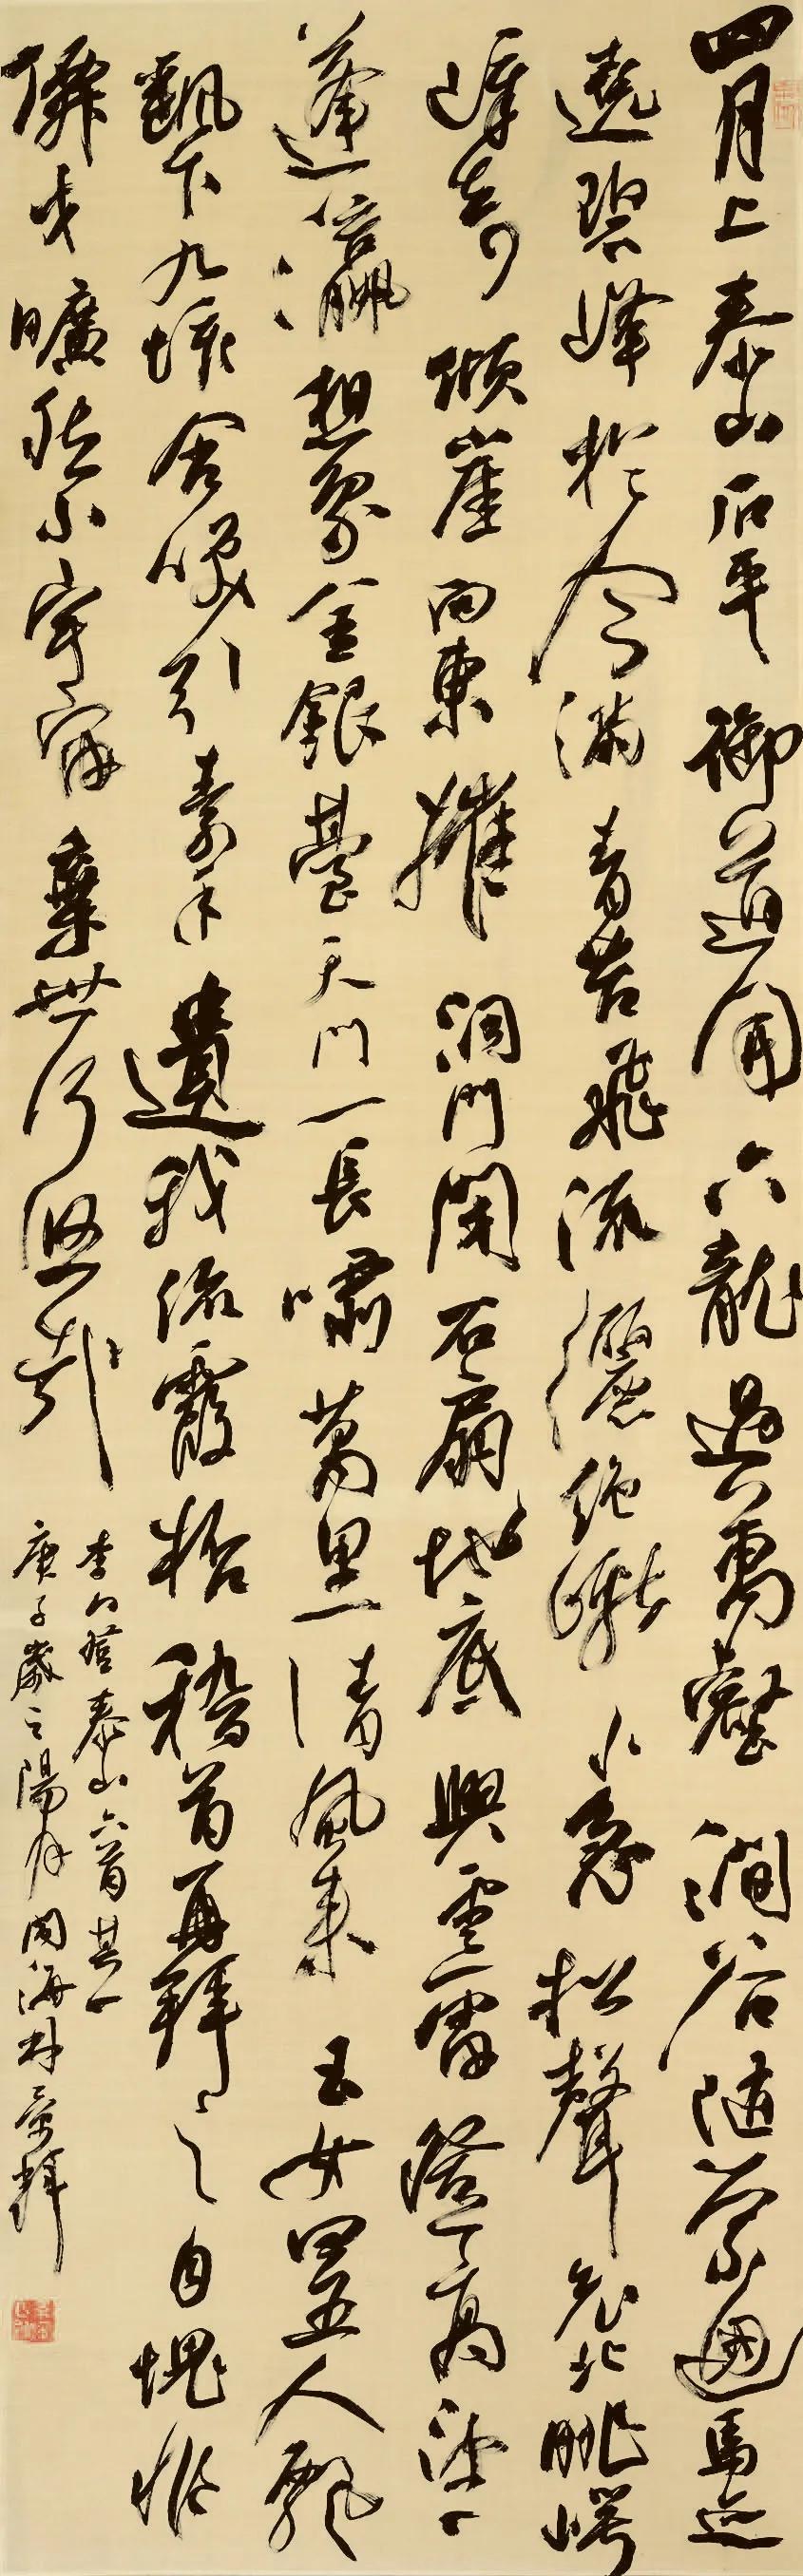 四月上泰山石平御道開六龍過萬壑澗谷隨縈迴馬迹
遶碧峰於今滿青苔飛流灑絕巘水急松聲哀北眺崿
嶂奇傾崖向東摧洞門閉石扇地底興雲雷登高望
蓬瀛想象金銀臺天門一長嘯萬里清風來玉女四五人飄
颻下九垓含笑引素手遺我流霞杯稽首再拜之自愧非
仙才曠然小宇宙棄世何悠哉
李白登泰山六首其一
庚子歲之陽月